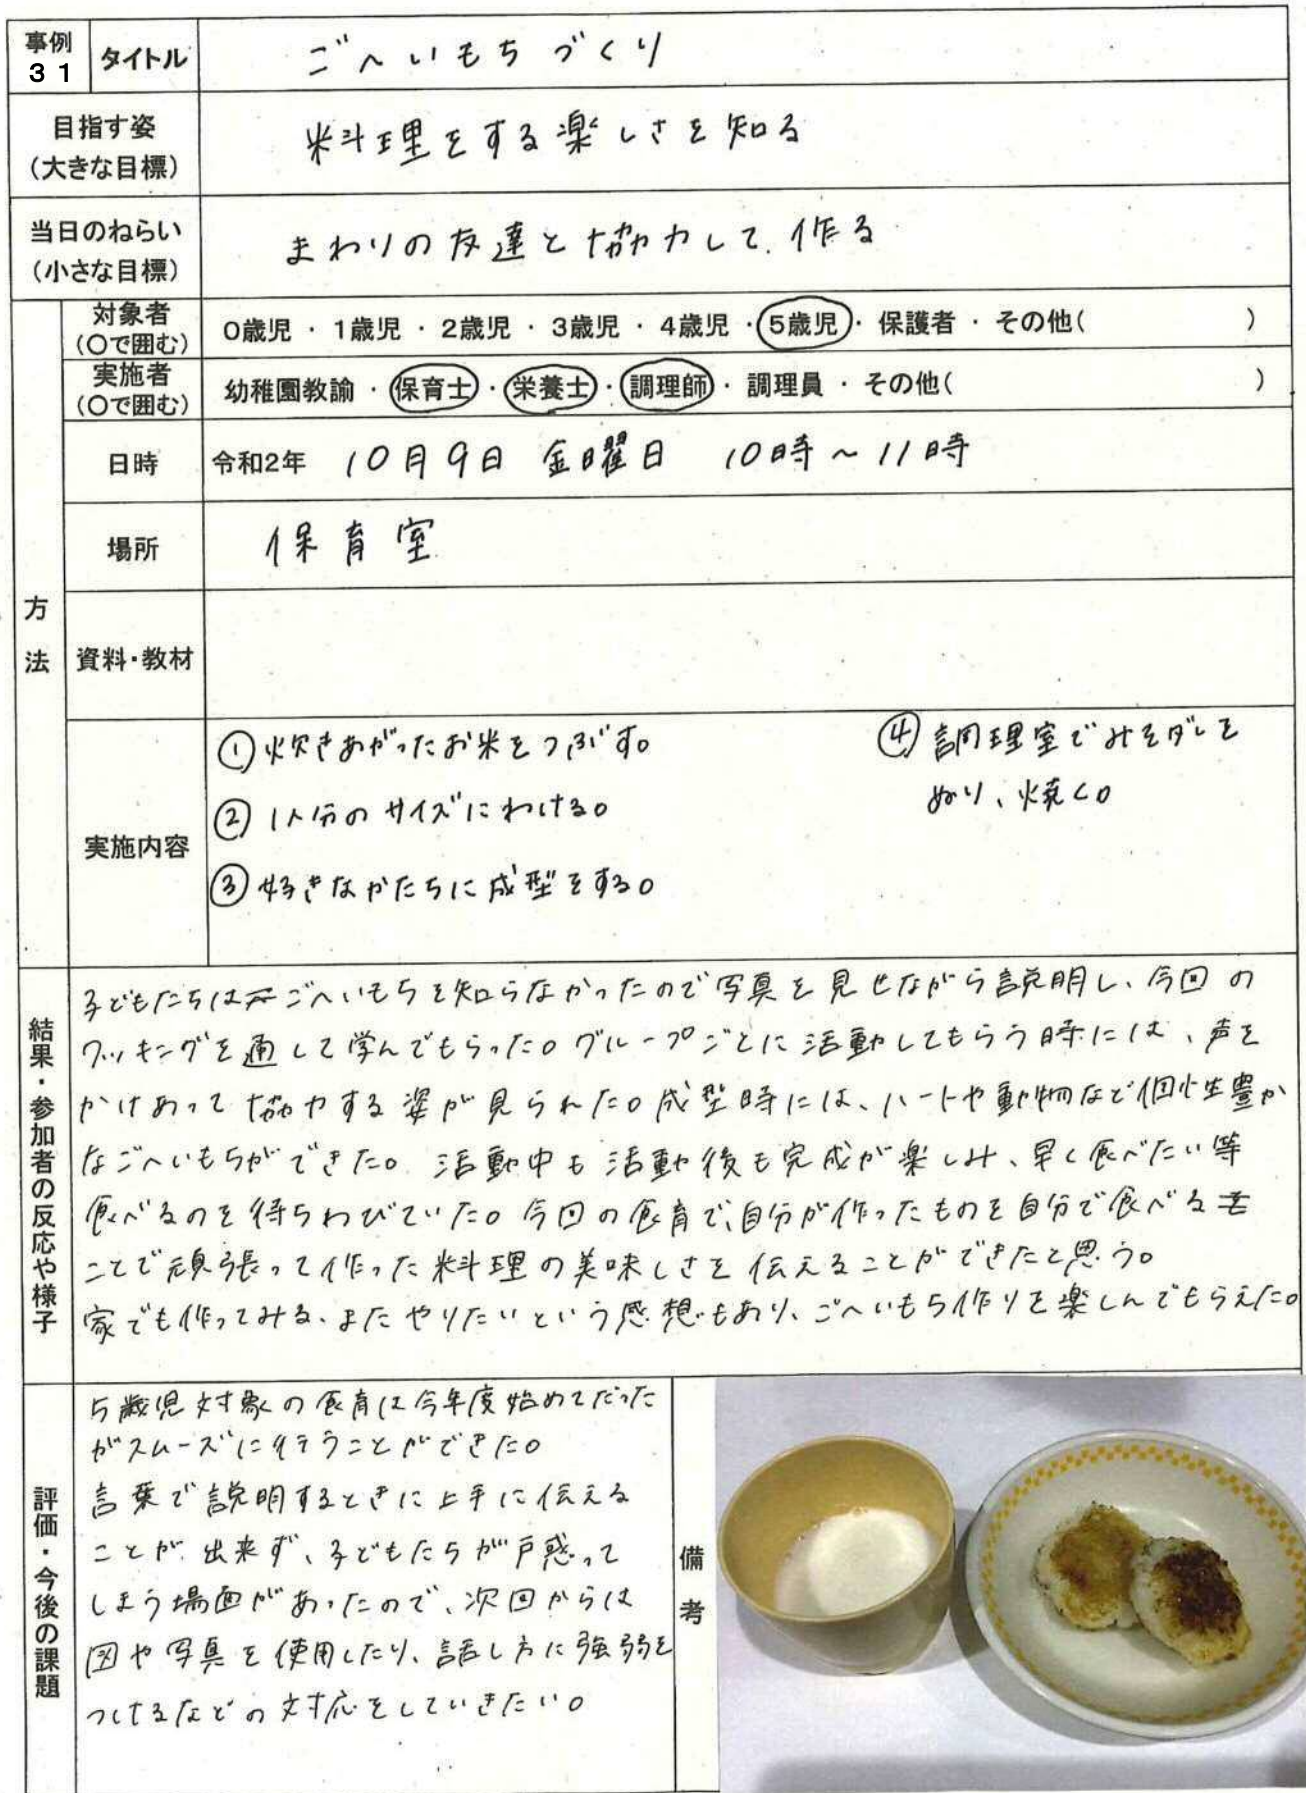 事例
31
タイトル
ごへいもちづくり
目指す姿
(大きな目標)
料理をする楽しさを知る
当日のねらい
(小さな目標)
まわりの友達と協力して、作る
方法
対象者
(〇で囲む)
0歳児 ・ 1歳児 ・ 2歳児 ・ 3歳児 ・ 4歳児 ・ 5歳児 ・ 保護者 ・ その他( )
実施者
(〇で囲む)
幼稚園教諭 ・ 保育士 ・ 栄養士 ・ 調理師 ・ 調理員 ・ その他( )
日時
令和2年 10月9日 金曜日 10時~11時
場所
保育室
資料・教材
実施内容
①炊きあがったお米をつぶす。
②1人分のサイズにわける。
③好きなかたちに成型をする。
④調理室でみそダレを
ぬり、焼く。
結果・参加者の反応や様子
子どもたちはごへいもちを知らなかったので写真を見せながら説明し、今回の
クッキングを通して学んでもらった。グループごとに活動してもらう時には、声を
かけあって協力する姿が見られた。成型時には、ハートや動物など個性豊か
なごへいもちができた。活動中も活動後も完成が楽しみ、早く食べたい等
食べるのを待ちわびていた。今回の食育で、自分が作ったものを自分で食べる
ことで頑張って作った料理の美味しさを伝えることができたと思う。
家でも作ってみる、またやりたいという感想もあり、ごへいもち作りを楽しんでもらえた。
評価・今後の課題
5歳児対象の食育は今年度始めてだった
がスムーズに行うことができた。
言葉で説明するときに上手に伝える
ことが出来ず、子どもたちが戸惑って
しまう場面があったので、次回からは
図や写真を使用したり、話し方に強弱を
つけるなどの対応をしていきたい。
備考